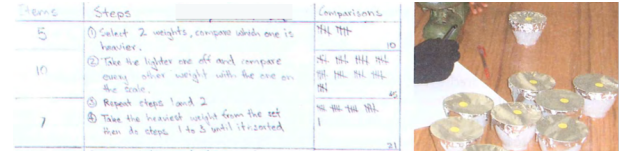 Items Steps Comparisons
5 ① Select 2 weights, compare which one is
heavier.
10
② Take the lighter one off and compare
10 every other weight with the one on
the scale.
45
③ Repeat steps 1 and 2
7 ④ Take the heaviest weight from the set
then do steps 1 to 3 until it sorted
21